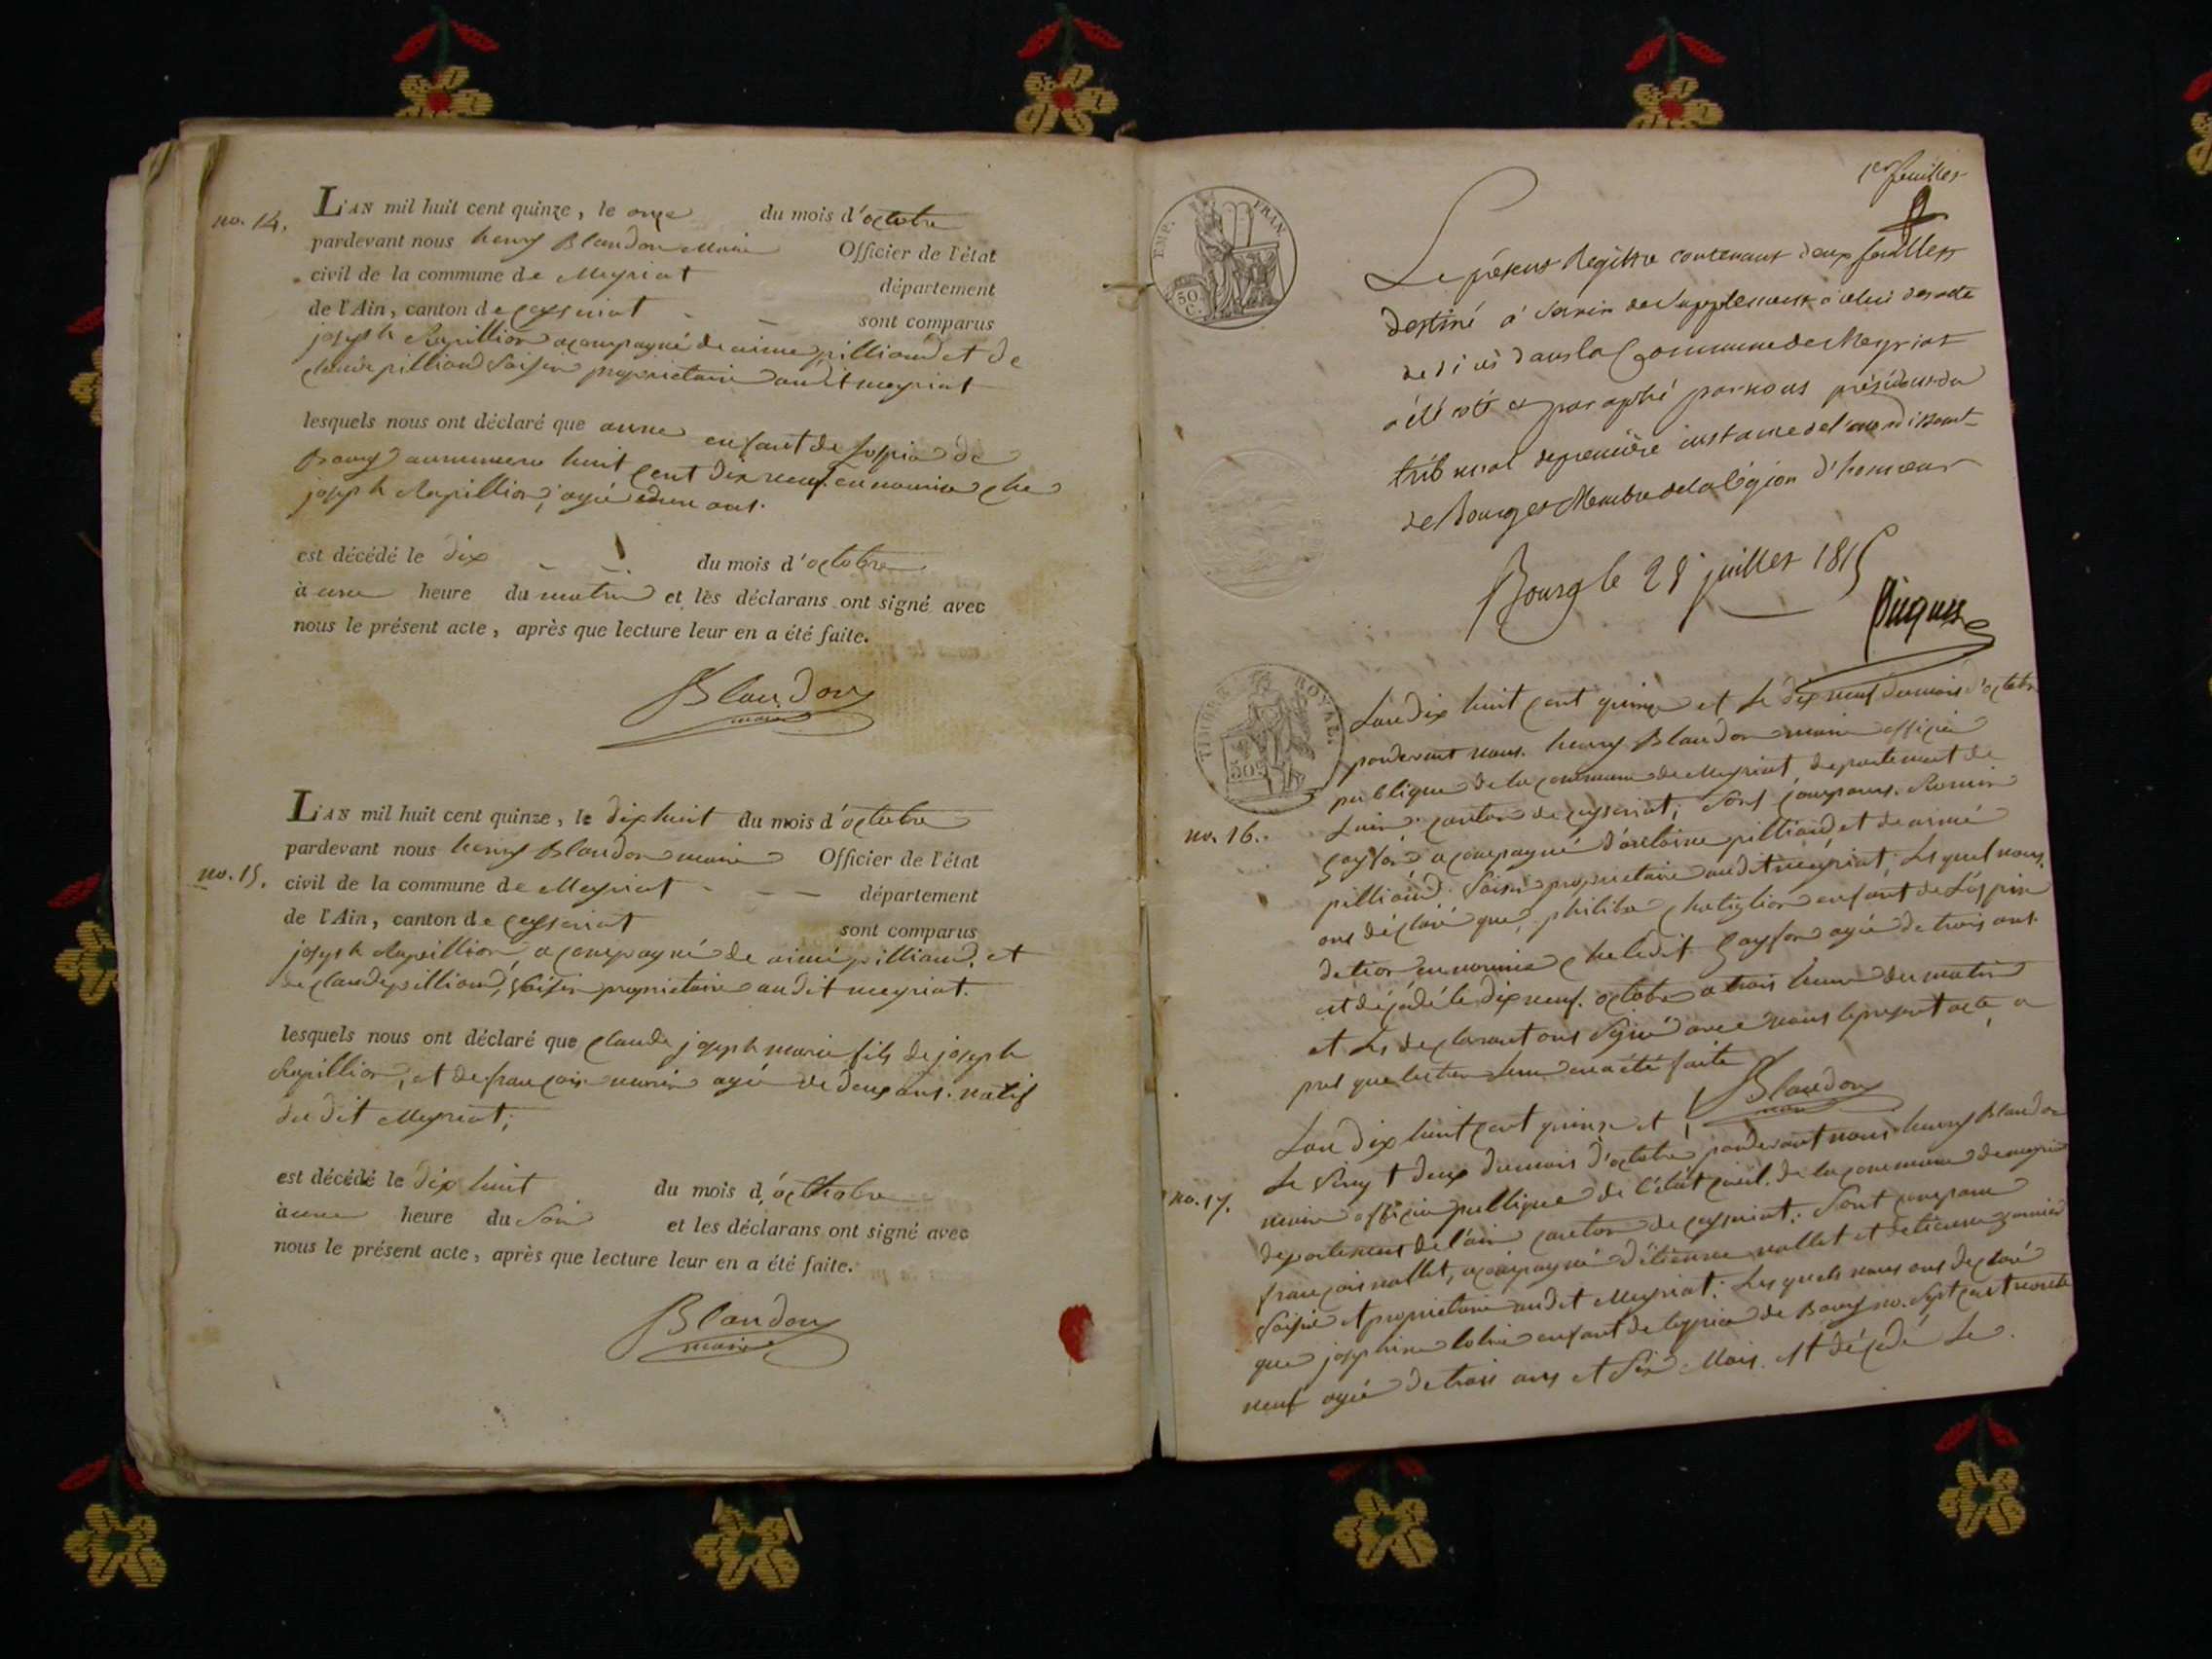 no. 14.
L'AN mil huit cent quinze, le onze du mois d'octobre
pardevant nous henry Blandon Maire Officier de l'état
civil de la commune de Meyriat département
de l'Ain, canton de ceyseriat sont comparus
joseph Rapillion acompagné de aimé pilliand et de
claude pilliand Voisin proprietaire audit meyriat
lesquels nous ont déclaré que anne enfant de
Bourg au numero huit cent dix neuf en nourice che
joseph Rapillion, agé ans.
est décédé le dix du mois d'octobre
à une heure du matin et les déclarans ont signé avec
nous le présent acte, après que lecture leur en a été faite.
Blandon
maire
no. 15.
L'AN mil huit cent quinze, le dix huit du mois d'octobre
pardevant nous henry Blandon maire Officier de l'état
civil de la commune de Meyriat département
de l'Ain, canton de ceyseriat sont comparus
joseph Rapillion, acompagné de aimé pilliand, et
de claude pilliand, Voisin proprietaire audit meyriat.
lesquels nous ont déclaré que claude joseph marie fils de joseph
Rapillion, et de françoise agé de deux ans. natif
du dit Meyriat;
est décédé le dix huit du mois d'octobre
à une heure du Soir et les déclarans ont signé avec
nous le présent acte, après que lecture leur en a été faite.
Blandon
maire
1er feuillet
TEMP. FRIN.
50 C.
Le présent Registre contenant deux feuillets
destiné à servir de Supplement à celui des actes
de décès dans la Commune de Meyriat
a été coté et paraphé par nous président du
tribunal de première instance de l'arrondissement
de Bourg et Membre de la légion d'honneur
Bourg le 28 juillet 1815
TIMBRE ROYAL.
50c
no. 16.
Lan dix huit cent quinze et le dix neuf du mois d'octobre
pardevant nous. henry Blandon maire officier
publique de la commune de Meyriat, departement de
Lain, canton de ceyseriat, Sont comparus.
acompagné d'antoine pilliand et de aimé
pilliand. Voisin proprietaire audit meyriat; Lesquel nous
ont déclaré que, philibe enfant de L'ospice
en nourice che ledit agé de trois ans.
est décédé le dix neuf. octobre a trois heure du matin
et Les declarant ont Signé avec nous le present acte, a
pres que lecture Leur en a été faite
Blandon
maire
no. 17.
Lan dix huit cent quinze et
Le Vingt deux du mois d'octobre pardevant nous henry Blandon
maire officier publique de l'état civil. de la commune de meyriat
departement de l'ain canton de ceyseriat; Sont comparu
françois nallet, acompagné d'étienne nallet et de étienne
Voisin et proprietaire audit Meyriat: Lesquels nous ont declaré
que josephine enfant de lospice de Bourg no. Sept cent
neuf agée de trois ans et Six Mois. est décédé Le